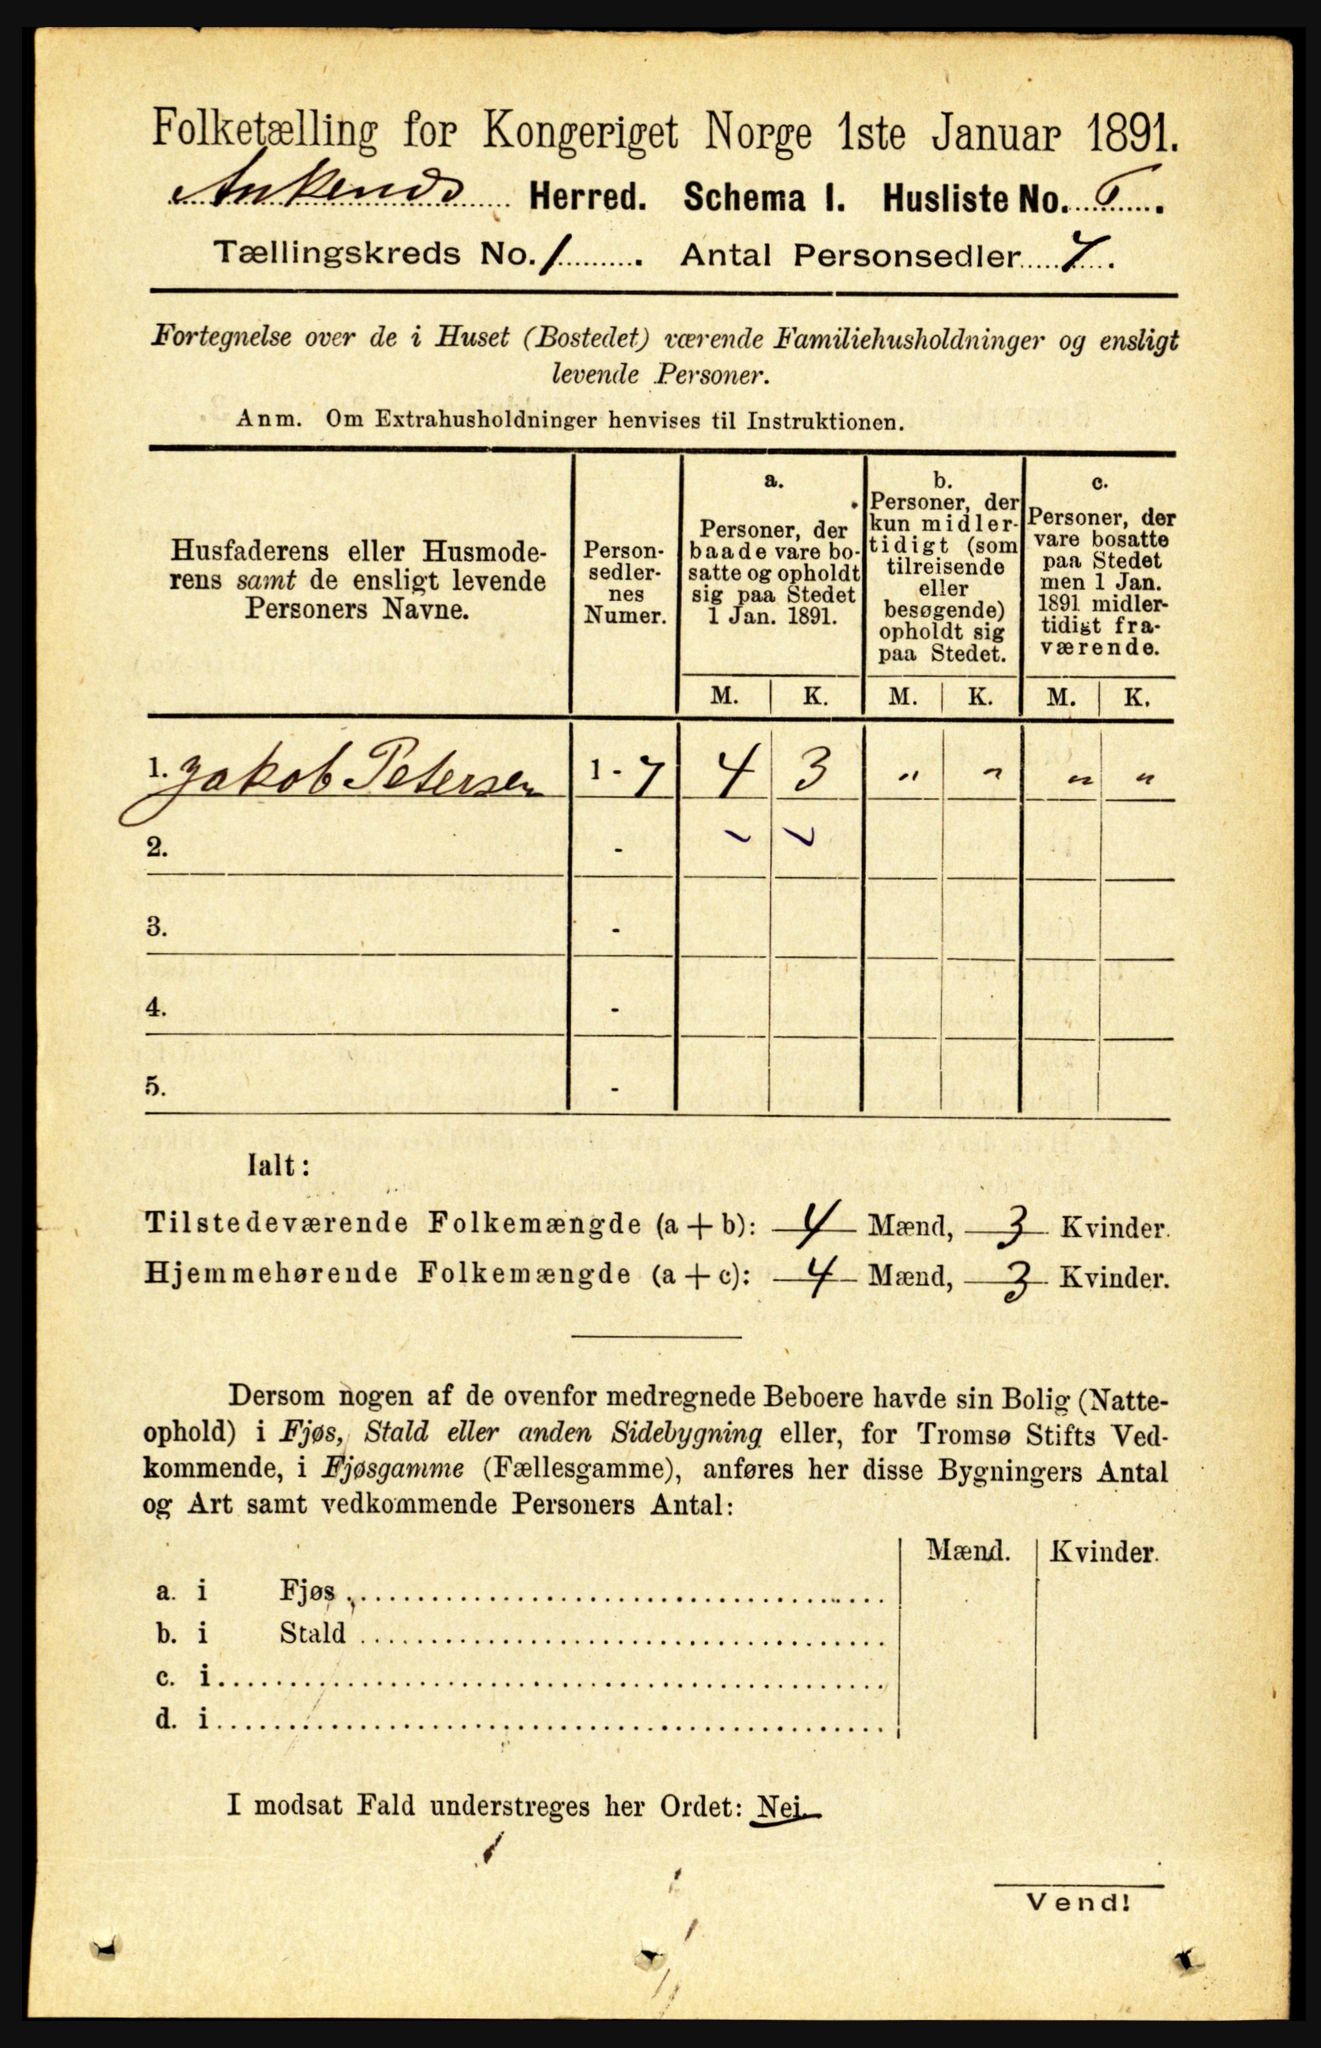 Folketælling for Kongeriget Norge 1ste Januar 1891.
Ankenes Herred. Schema I. Husliste No. .
Tællingskreds No. 1 . Antal Personsedler 7 .
Fortegnelse over de i Huset (Bostedet) værende Familiehusholdninger og ensligt
levende Personer.
Anm. Om Extrahusholdninger henvises til Instruktionen.
Husfaderens eller Husmode-
rens samt de ensligt levende
Personers Navne.
Person-
sedler-
nes
Numer.
a.
Personer, der
baade vare bo-
satte og opholdt
sig paa Stedet
1 Jan. 1891.
b.
Personer, der
kun midler-
tidigt (som
tilreisende
eller
besøgende)
opholdt sig
paa Stedet.
c.
Personer, der
vare bosatte
paa Stedet
men 1 Jan.
1891 midler-
tidigt fra-
værende.
M. K. M. K. M. K.
1. Jakob Petersen 1 - 7 4 3 " " " "
2. -
3. -
4. -
5. -
Ialt:
Tilstedeværende Folkemængde (a + b): 4 Mænd, 3 Kvinder.
Hjemmehørende Folkemængde (a + c): 4 Mænd, 3 Kvinder.
Dersom nogen af de ovenfor medregnede Beboere havde sin Bolig (Natte-
ophold) i Fjøs, Stald eller anden Sidebygning eller, for Tromsø Stifts Ved-
kommende, i Fjøsgamme (Fællesgamme), anføres her disse Bygningers Antal
og Art samt vedkommende Personers Antal:
Mænd. Kvinder.
a. i Fjøs
b. i Stald
c. i
d. i
I modsat Fald understreges her Ordet: Nei.
Vend!